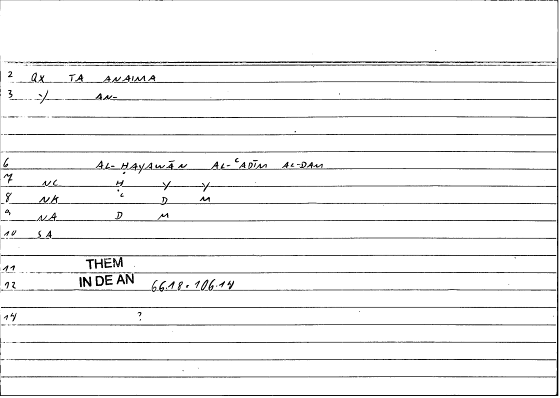 2 QX TA ANAIMA
3 -/ AN-
6 AL-ḤAYAWĀN AL-ʿADĪM AL-DAM
7 NC Ḥ Y Y
8 NA ʿ D M
9 NA D M
10 SA
11 THEM
12 IN DE AN 66.18. 106.14
14 ?